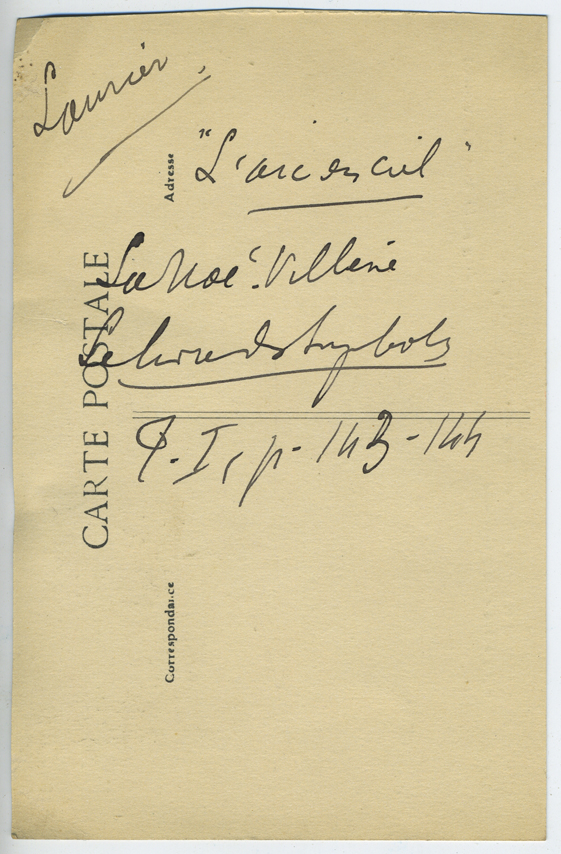 Laurier.
"L'arc en ciel"
La Noé. Villene
Le livre des Symboles
T. I, p. 143-144
CARTE POSTALE
Adresse
Correspondance